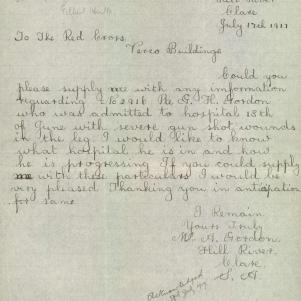 Hill River
Clare
July 17th 1917
To The Red Cross.
Verco Buildings
Could you
please supply me with any information
regarding No 2918 Pte G. H. Gordon
who was admitted to hospital 18th
of June with severe gun shot wounds
in the leg I would like to know
what hospital he is in and how
he is progressing If you could supply
me with these particulars I would be
very pleased Thanking you in anticipation
for same
I Remain
Yours Truly
A. Gordon.
Hill River.
Clare.
S. A.
July 1917